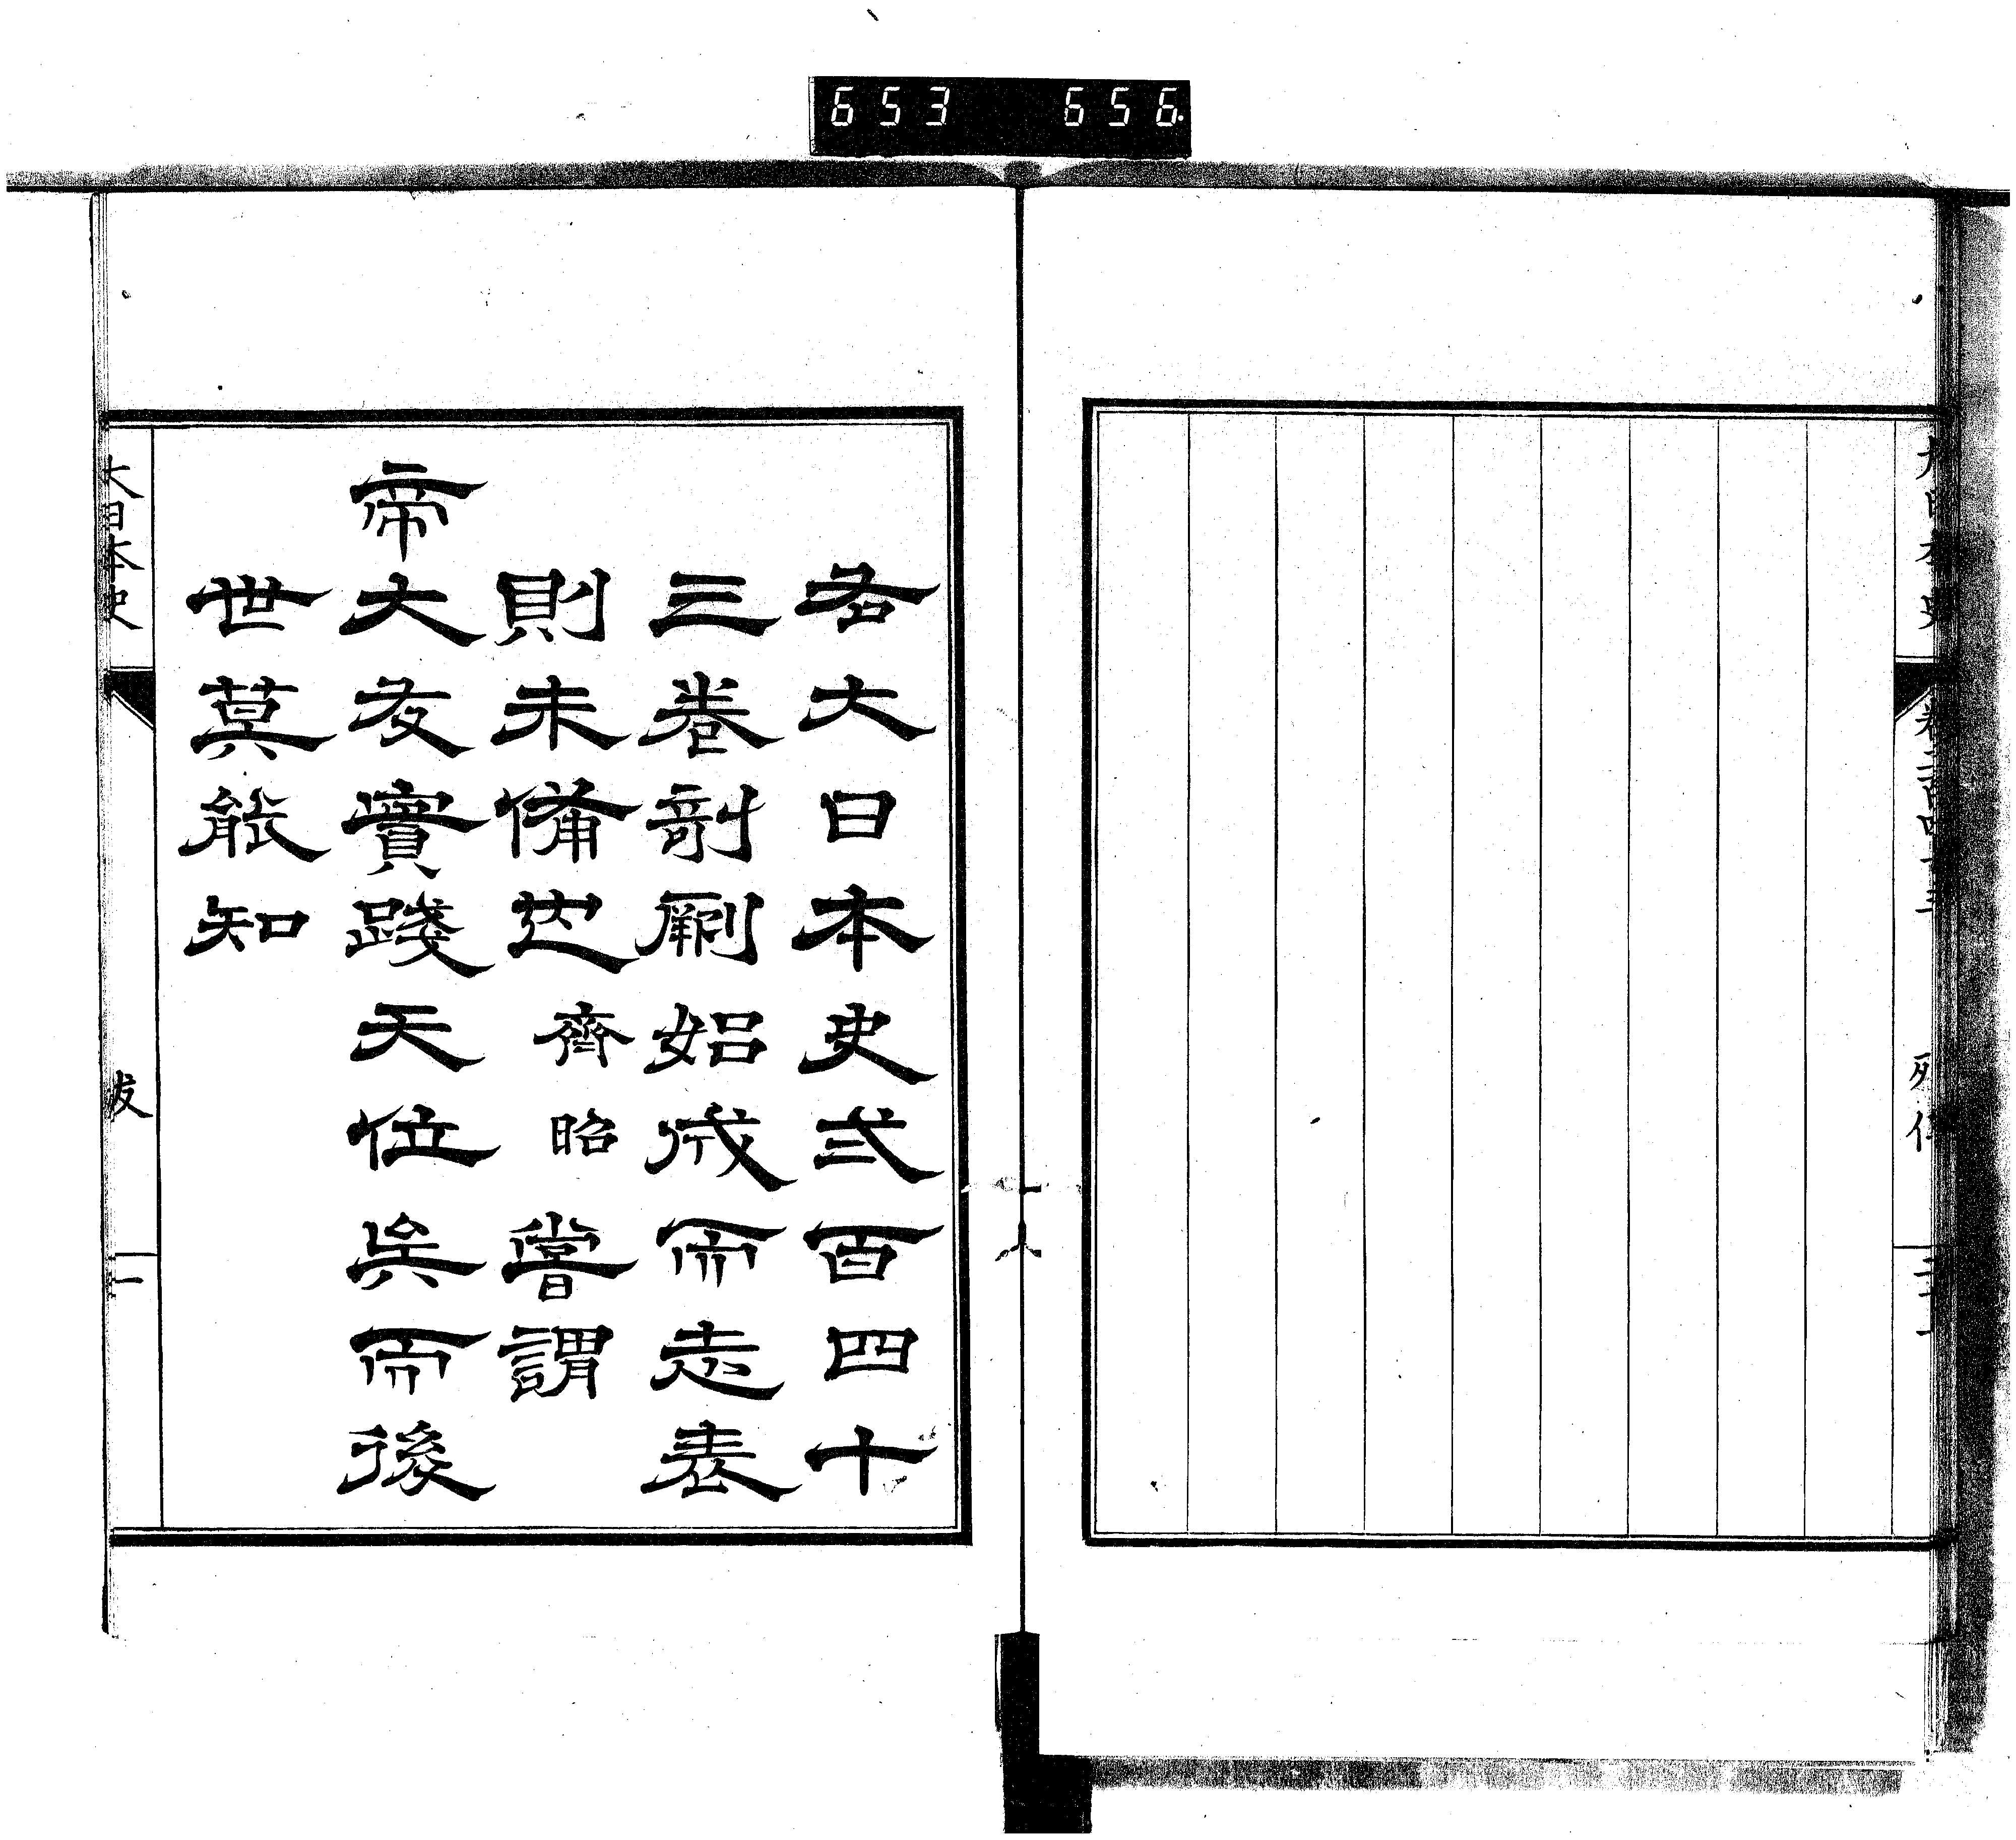 653 656
大日本史
卷二百四十三
列傳
右大日本史弍百四十
三卷剞劂始成而志表
則未備也齊昭嘗謂
帝大友實踐天位矣而後
世莫能知
大日本史
跋
一